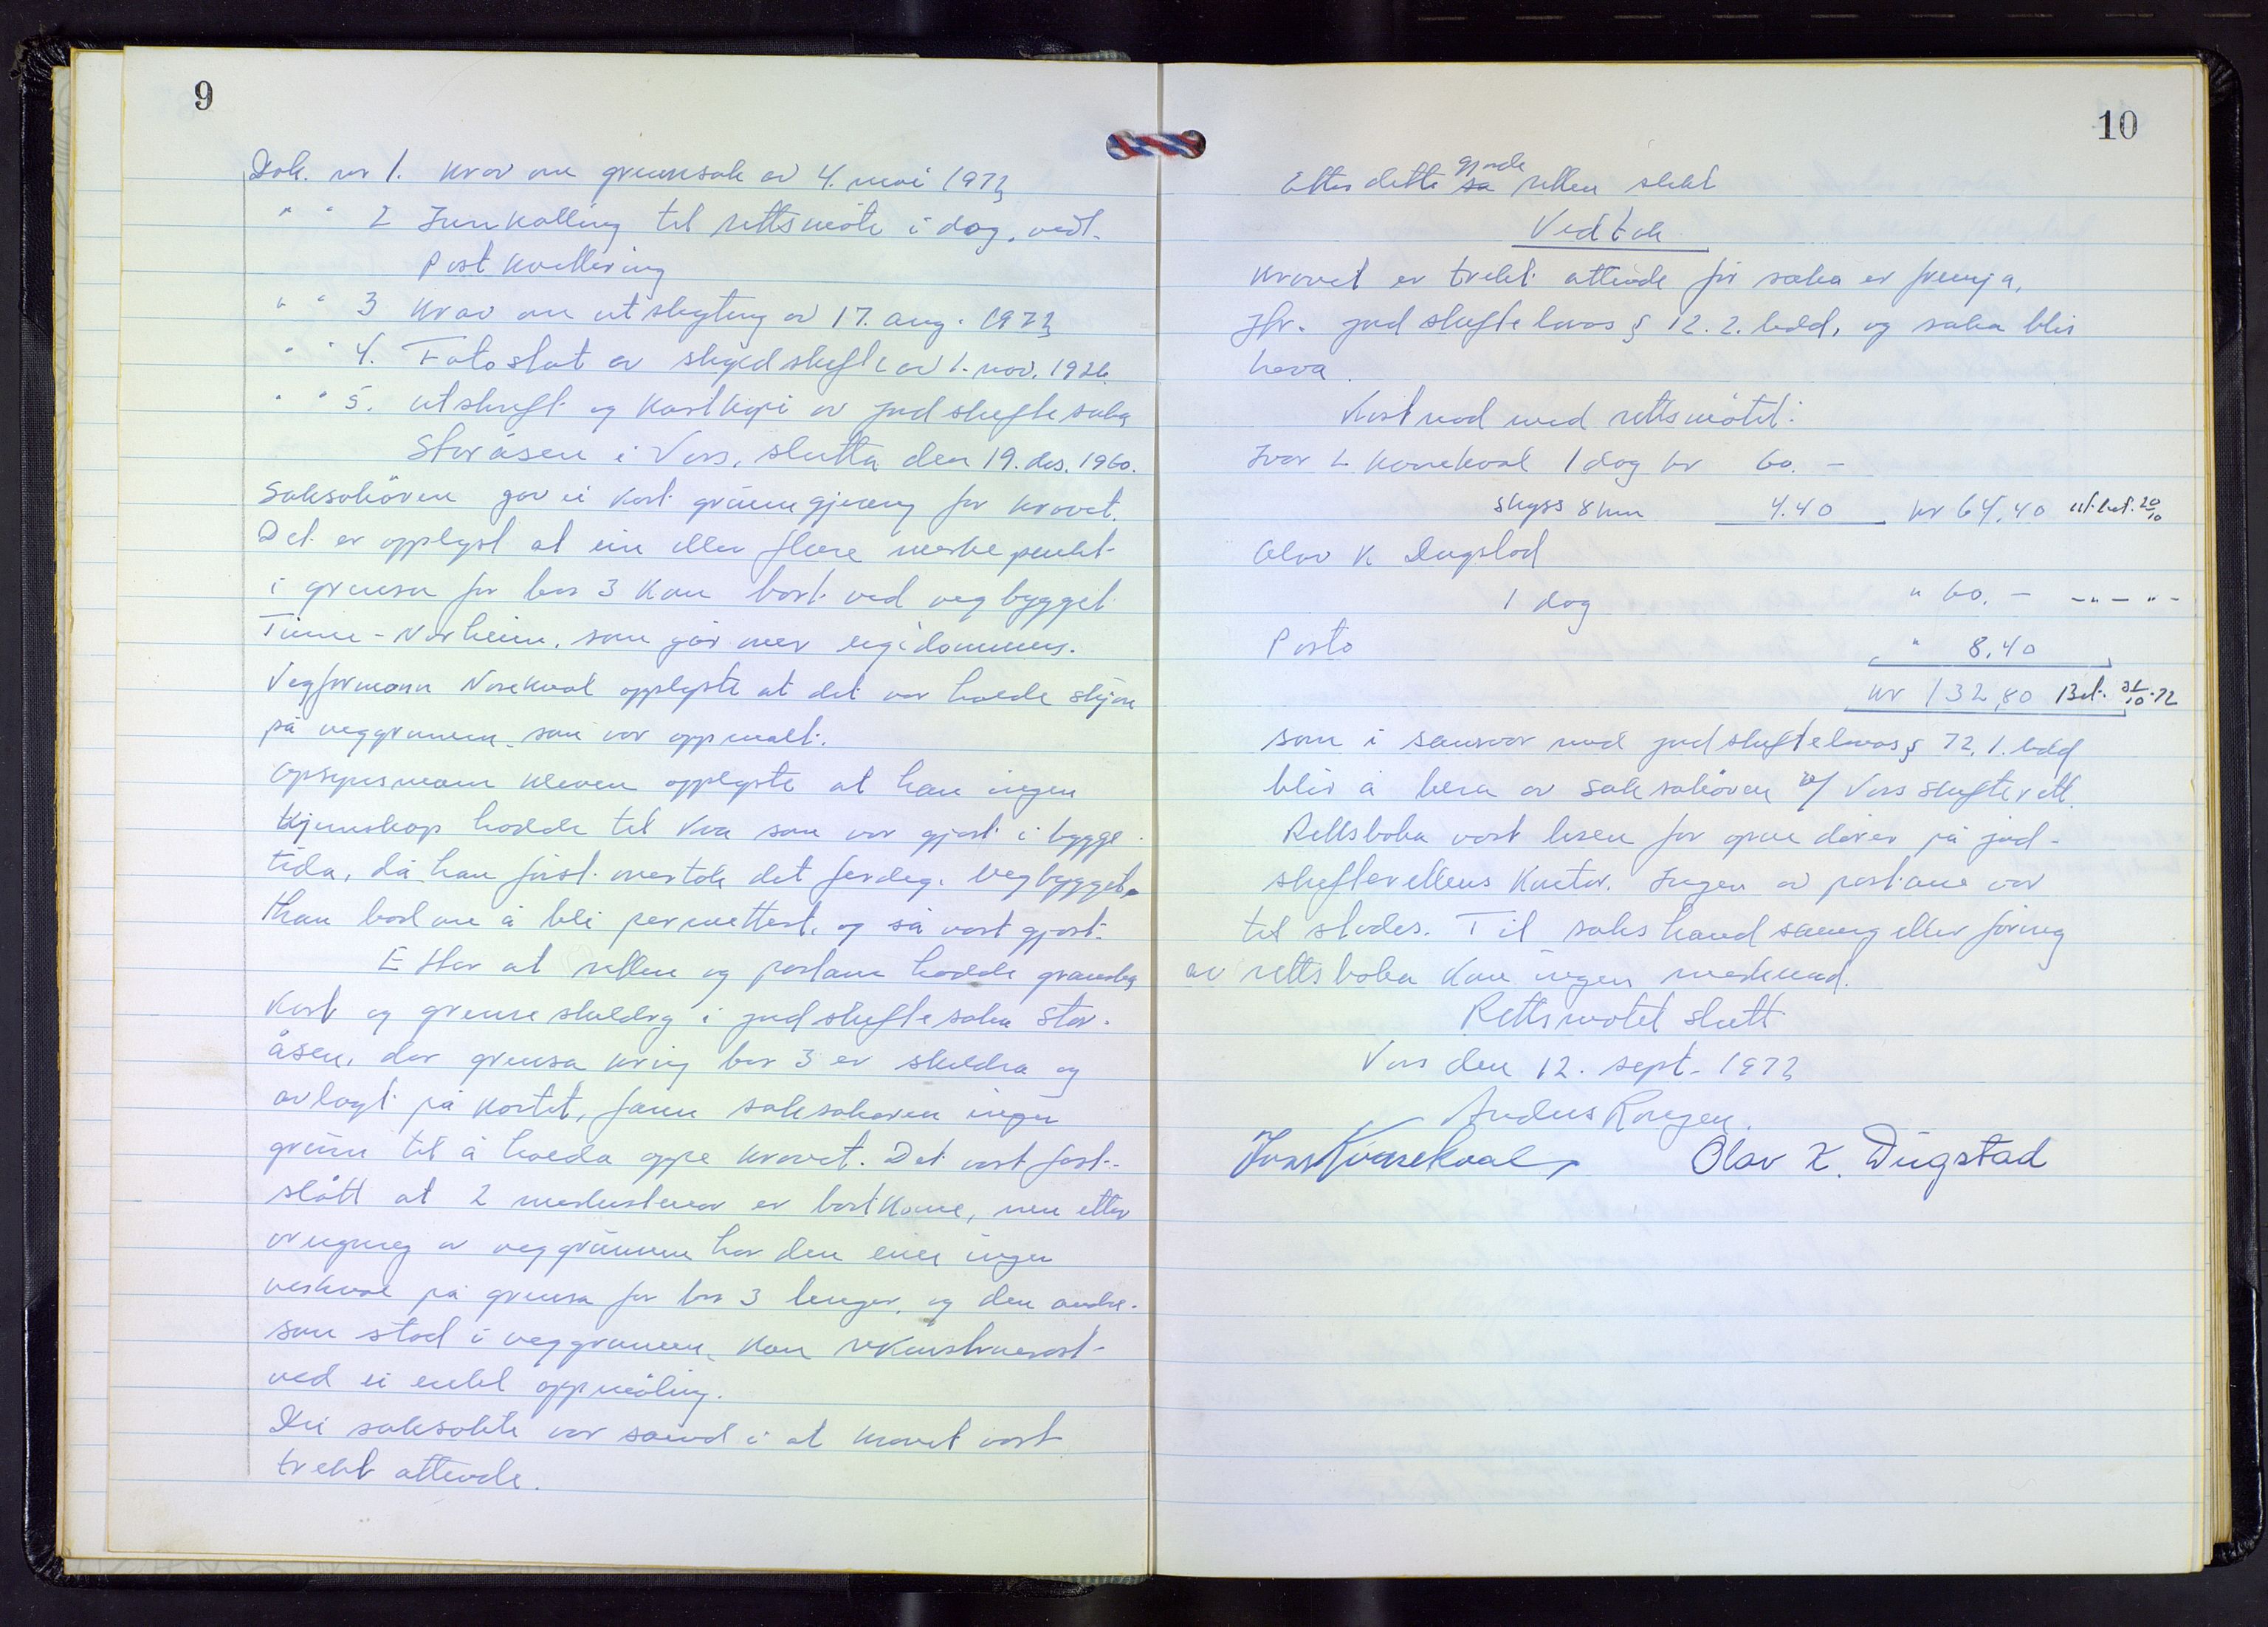 9
Dok. nr 1. Krav om grensesak av 4. mai 1972
" " 2 Innkalling til rettsmøte i dag, vedl.
Postkvittering
" " 3 Krav om utskyting av 17. aug. 1972
" " 4. Fotostat av skyldskifte av 1. nov. 1926.
" " 5. utskrift og kartkopi av jordskiftesaka
Storåsen i Voss, slutta den 19. des. 1960.
Saksøkjaren gav ei kort grunngjeving for kravet.
Det er opplyst at ein eller fleire merkepunkt
i grensa for bnr 3 kom bort ved vegbygget
- Norheim, som går over eigedommens.
Vegformann opplyste at det var halde skjøn
på veggrunnen, som var oppmalt.
Opsynsmann Kleven opplyste at han ingen
kjennskap hadde til kva som var gjort i bygge-
tida, då han først overtok det ferdige vegbygget.
Han bad om å bli permittert, og så vart gjort.
Etter at retten og partane hadde granska
kart og grenseskildring i jordskiftesaka Stor-
åsen, der grensa kring bnr 3 er skildra og
avlagt på kartet, fann saksøkaren ingen
grunn til å halda oppe kravet. Det vart fast-
slått at 2 merkesteinar er bortkome, men etter
av veggrunnen har den eine ingen
verknad på grensa for bnr 3 lenger, og den andre
som stod i veggrunnen, kan rekonstruerast
ved ei enkel oppmåling.
Dei saksøkte var samd i at kravet vart
trekt attende.
10
Etter dette gjorde sa retten slikt
Vedtak
Kravet er trekt attende før saka er fremja,
Jfr. jordskiftelovas § 12. 2. ledd, og saka blir
heva.
Kostnad med rettsmøtet:
Ivar L Kvarekval 1 dag kr 60. -
skyss 8 km 4.40 kr 64,40 utbet. 20/10
Olav K Dugstad
1 dag " 60. - - " - " -
Porto " 8,40
kr 132,80 Bet. 31/10-72
som i samsvar med jordskiftelovas § 72, 1. ledd
blir å bera av saksøkaren v/ Voss skifterett.
Rettsboka vart lesen for opne dører på jord-
skifterettens kontor. Ingen av partane var
til stades. Til sakshandsaming eller føring
av rettsboka kom ingen merknad.
Rettsmøtet slutt
Voss den 12. sept. 1972
Anders Rongen.
Ivar Kvarekval Olav K. Dugstad